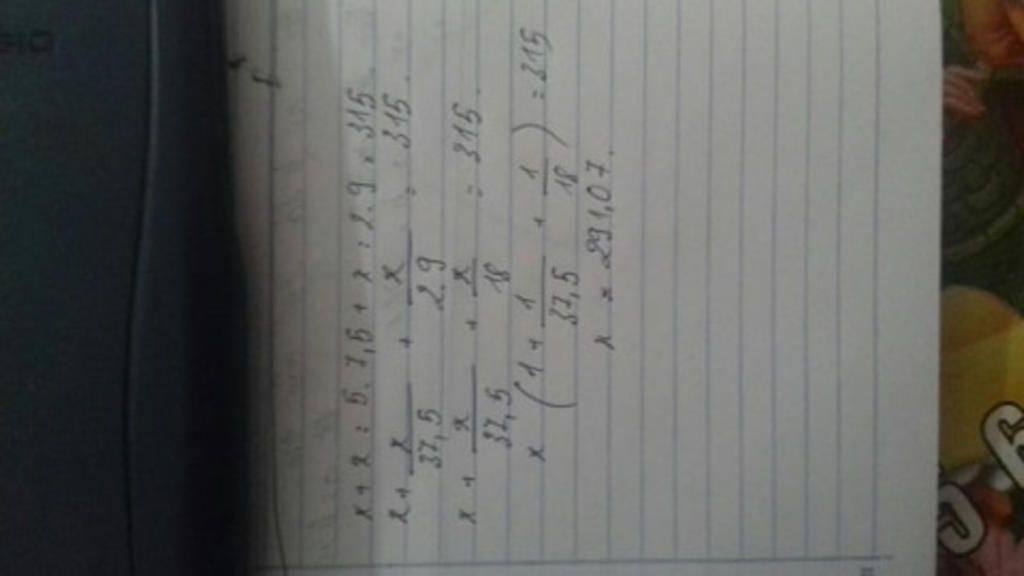 x + x : 5 . 7,5 + x : 2 . 9 = 315.
x + x/37,5 + x/2.9 = 315.
x + x/37,5 + x/18 = 315.
x (1 + 1/37,5 + 1/18) = 315
x = 291,07.